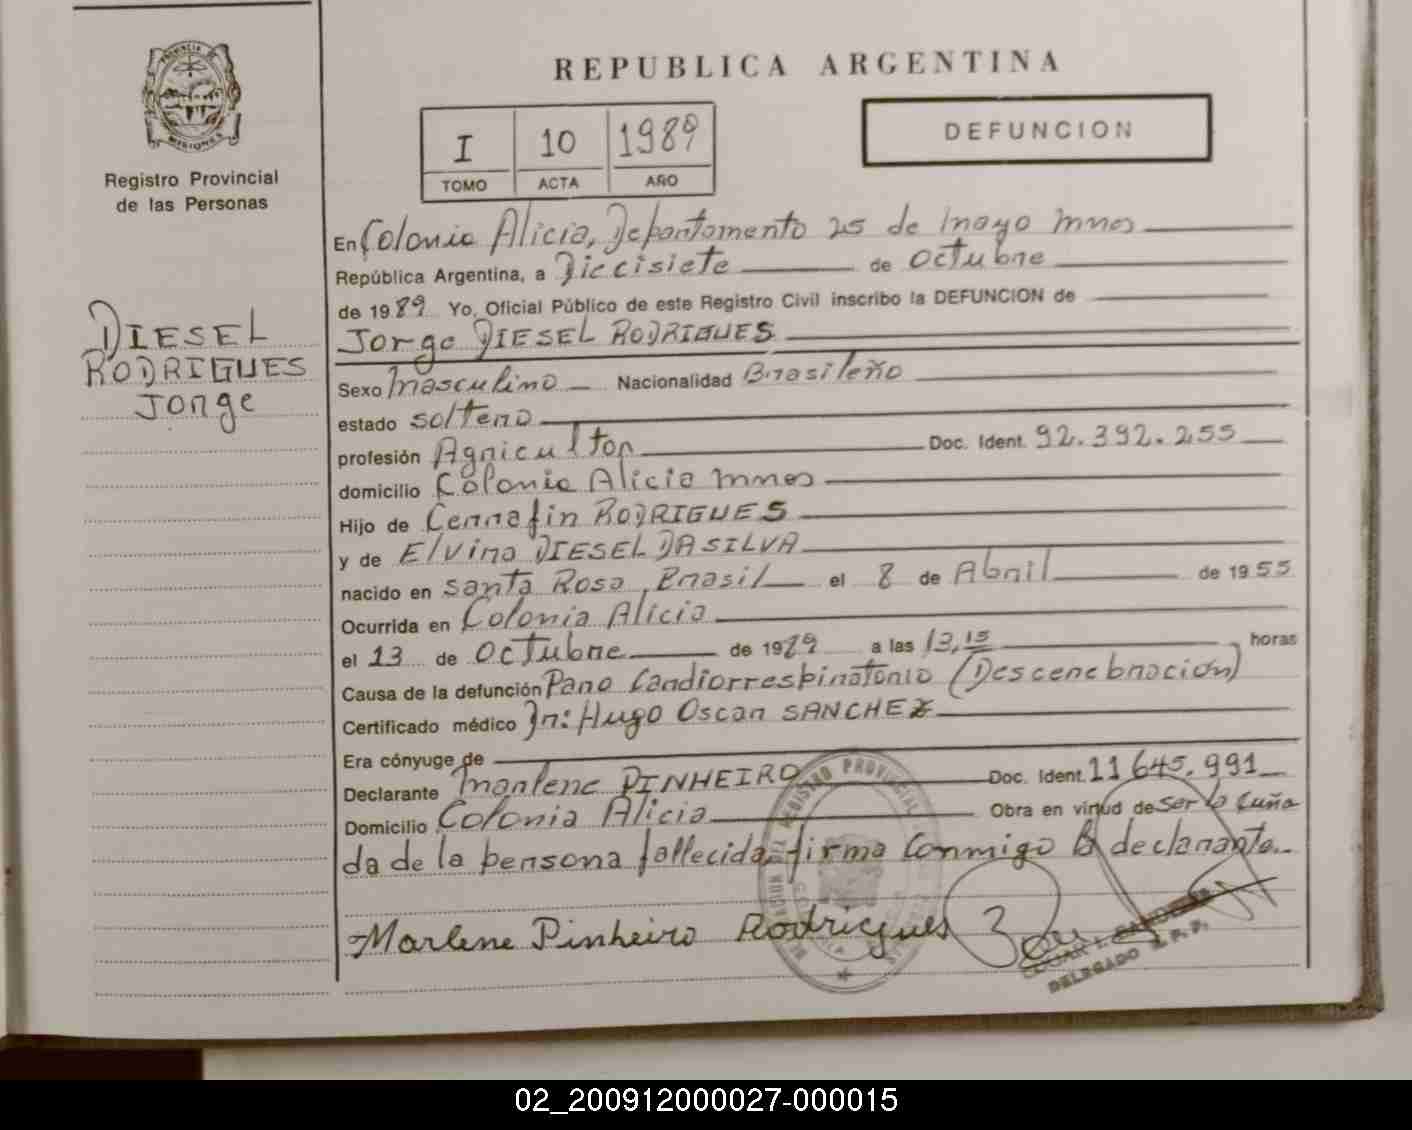 PROVINCIA DE
MISIONES
Registro Provincial
de las Personas
DIESEL
RODRIGUES
Jorge
REPUBLICA ARGENTINA
I 10 1989
TOMO ACTA AÑO
DEFUNCION
En Colonia Alicia, Departamento 25 de Mayo Mnes
República Argentina, a Diecisiete de Octubre
de 1989 Yo, Oficial Público de este Registro Civil inscribo la DEFUNCION de
Jorge DIESEL RODRIGUES
Sexo Masculino Nacionalidad Brasileño
estado Soltero
profesión Agricultor Doc. Ident. 92.392.255
domicilio Colonia Alicia Mnes
Hijo de Cerrafin RODRIGUES
y de Elvira DIESEL DA SILVA
nacido en Santa Rosa, Brasil el 8 de Abril de 1955
Ocurrida en Colonia Alicia
el 13 de Octubre de 1989 a las 13,15 horas
Causa de la defunción Paro Cardiorrespiratorio (Descerebración)
Certificado médico Dr: Hugo Oscar SANCHEZ
Era cónyuge de
Declarante Marlene PINHEIRO Doc. Ident. 11645.991
Domicilio Colonia Alicia Obra en virtud de ser la cuña
da de la persona fallecida, firma conmigo la declarante.
Marlene Pinheiro Rodrigues
REGISTRO PROVINCIAL
DELEGADO R.P.P.
02_200912000027-000015